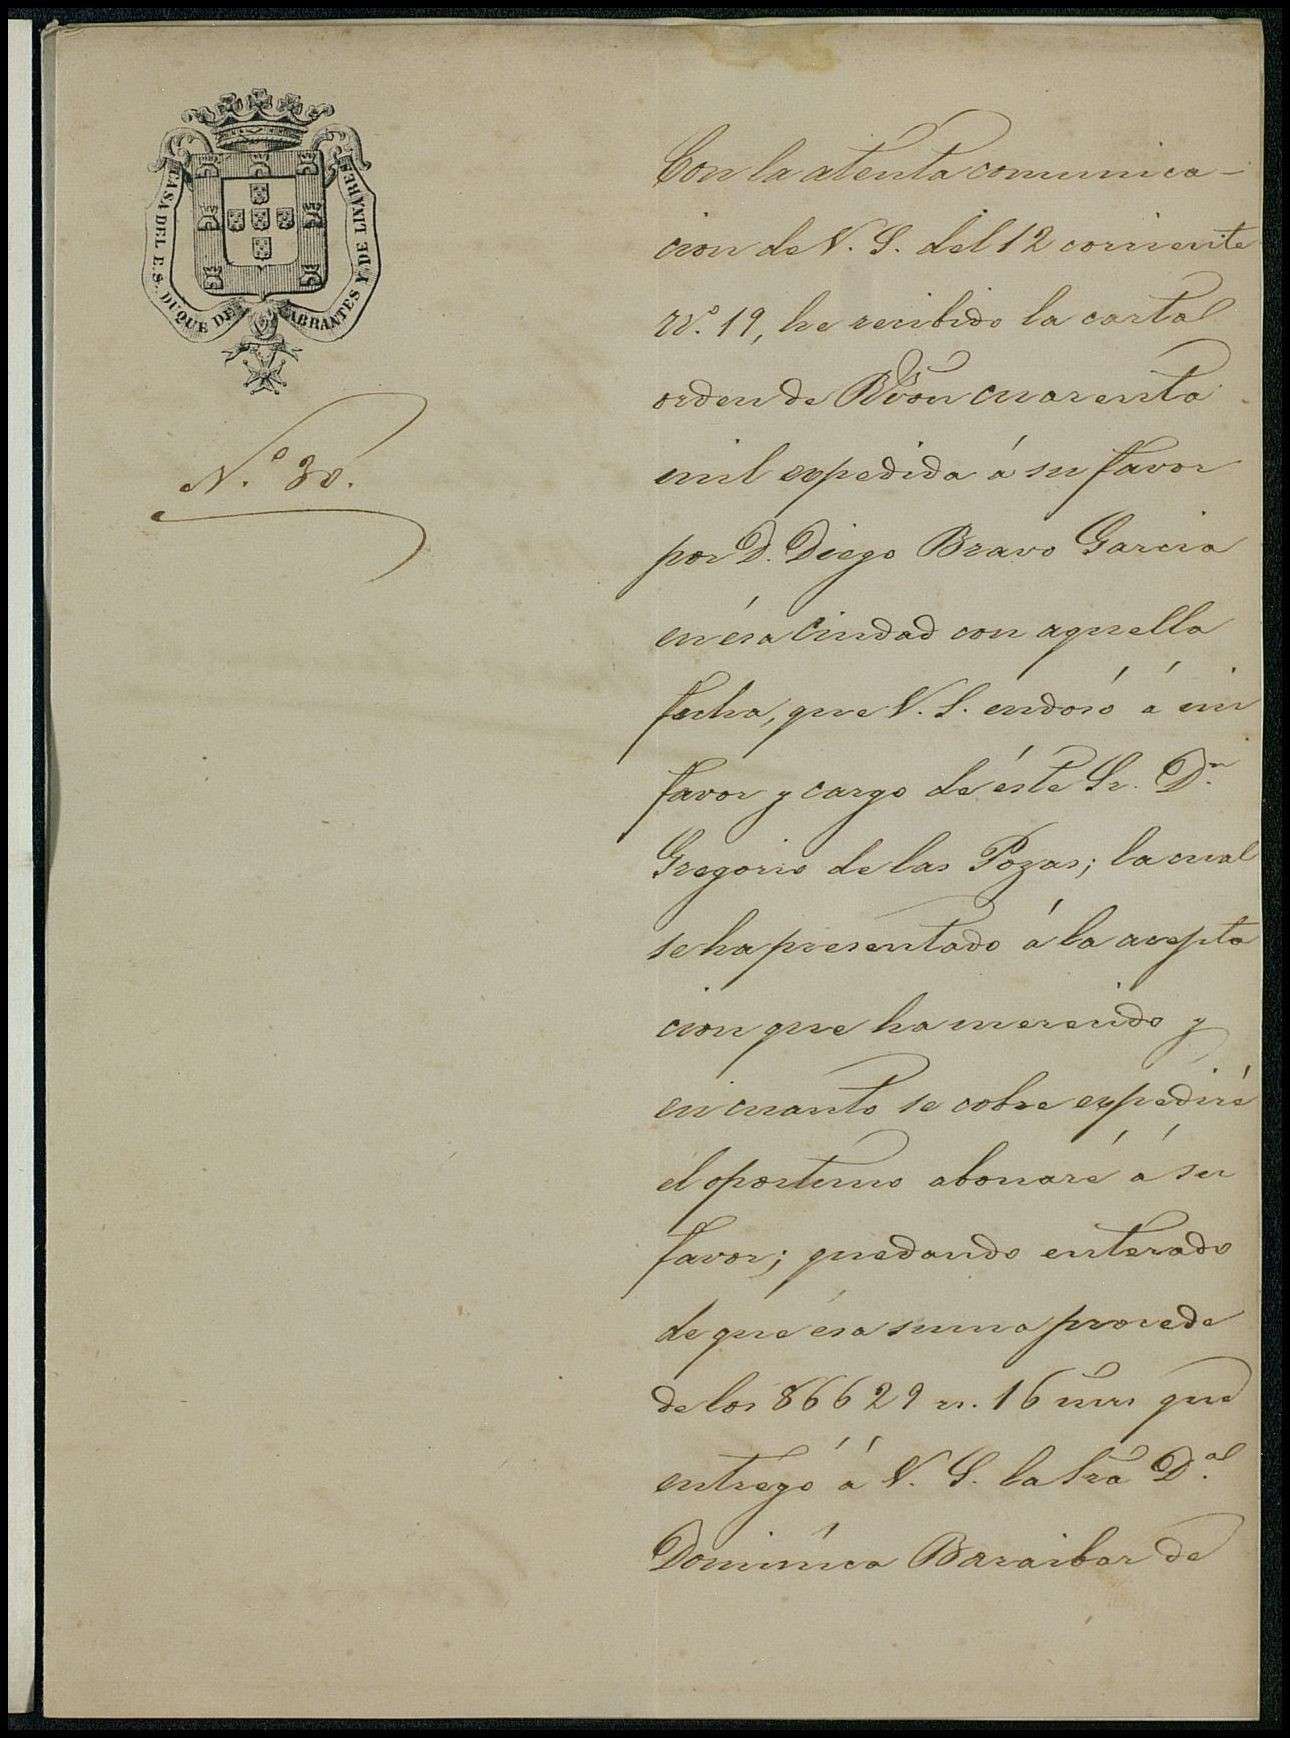 CASA DEL E.S. DUQUE DE ABRANTES Y DE LINARES
N.º 30.
Con la atenta comunica-
cion de V. S. del 12 corriente
n.º 19, he recibido la carta
orden de Rvon cuarenta
mil expedida á su favor
por D. Diego Bravo Garcia
en ésa Ciudad con aquella
fecha, que V. S. endosó á mi
favor y cargo de éste Sr. Dn.
Gregorio de las Pozas; la cual
se ha presentado á la acepta
cion que ha merecido y
en cuanto se cobre expediré
el oportuno abonaré á su
favor; quedando enterado
de que ésa suma procede
de los 86629 rs. 16 mrs que
entregó á V. S. la Sra D.a
Domínica Baraibar de